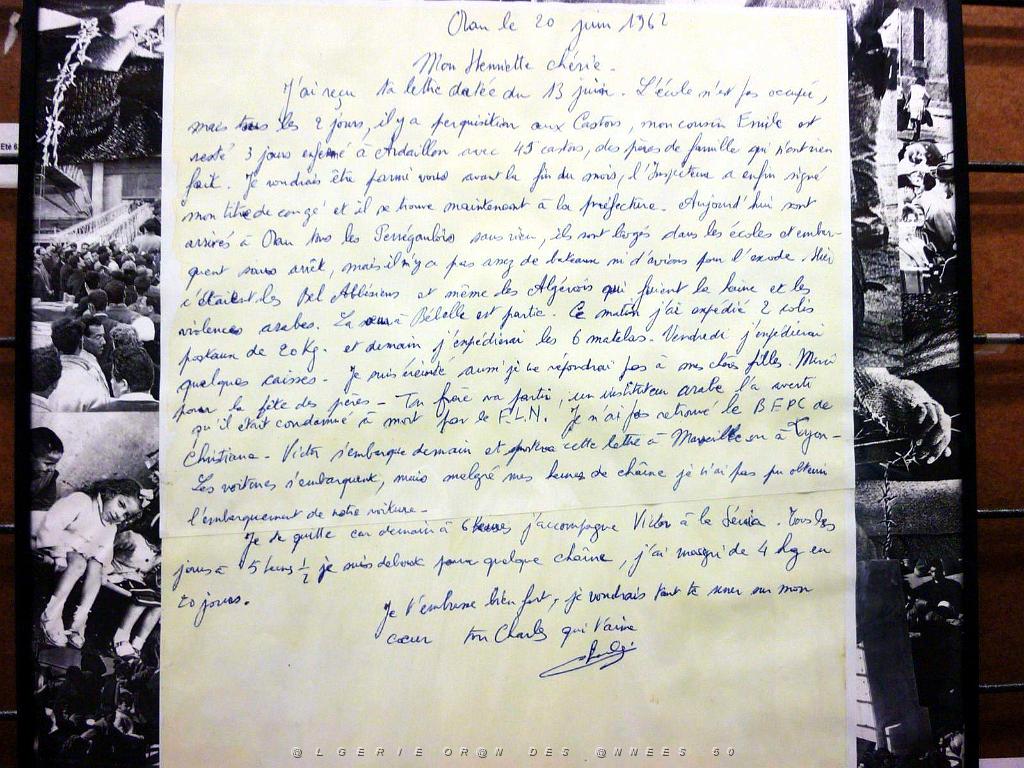 Oran le 20 juin 1962
Mon Henriette chérie.
J'ai reçu ta lettre datée du 13 juin. L'école n'est pas occupée,
mais tous les 2 jours, il y a perquisition aux Castors, mon cousin Emile est
resté 3 jours enfermé à Ardaillon avec 45 castors, des pères de famille qui n'ont rien
fait. Je voudrais être parmi vous avant la fin du mois, l'Inspecteur a enfin signé
mon titre de congé et il se trouve maintenant à la préfecture. Aujourd'hui sont
arrivés à Oran tous les Perrégaulois sans rien, ils sont logés dans les écoles et embar-
quent sans arrêt, mais il n'y a pas assez de bateaux ni d'avions pour l'exode. Hier
c'étaient les Bel Abbésiens et même des Algérois qui fuient la haine et les
violences arabes. La sœur à Bélelle est partie. Ce matin j'ai expédié 2 colis
postaux de 20 Kg. et demain j'expédierai les 6 matelas. Vendredi j'expédierai
quelques caisses. Je suis éreinté aussi je ne répondrai pas à mes chères filles. Merci
pour la fête des pères - Ton frère va partir, un instituteur arabe l'a averti
qu'il était condamné à mort par le F.L.N. Je n'ai pas retrouvé le B.E.P.C de
Christiane. Victor s'embarque demain et postera cette lettre à Marseille ou à Lyon.
Les voitures s'embarquent, mais malgré mes heures de chaîne je n'ai pas pu obtenir
l'embarquement de notre voiture.
Je te quitte car demain à 6 heures j'accompagne Victor à la Sénia. Tous les
jours à 5 heures ½ je suis debout pour quelque chaîne, j'ai maigri de 4 kg en
20 jours.
Je t'embrasse bien fort, je voudrais tant te serrer sur mon
cœur ton Charles qui t'aime
@LGERIE OR@N DES @NNEES 50
Eté 6